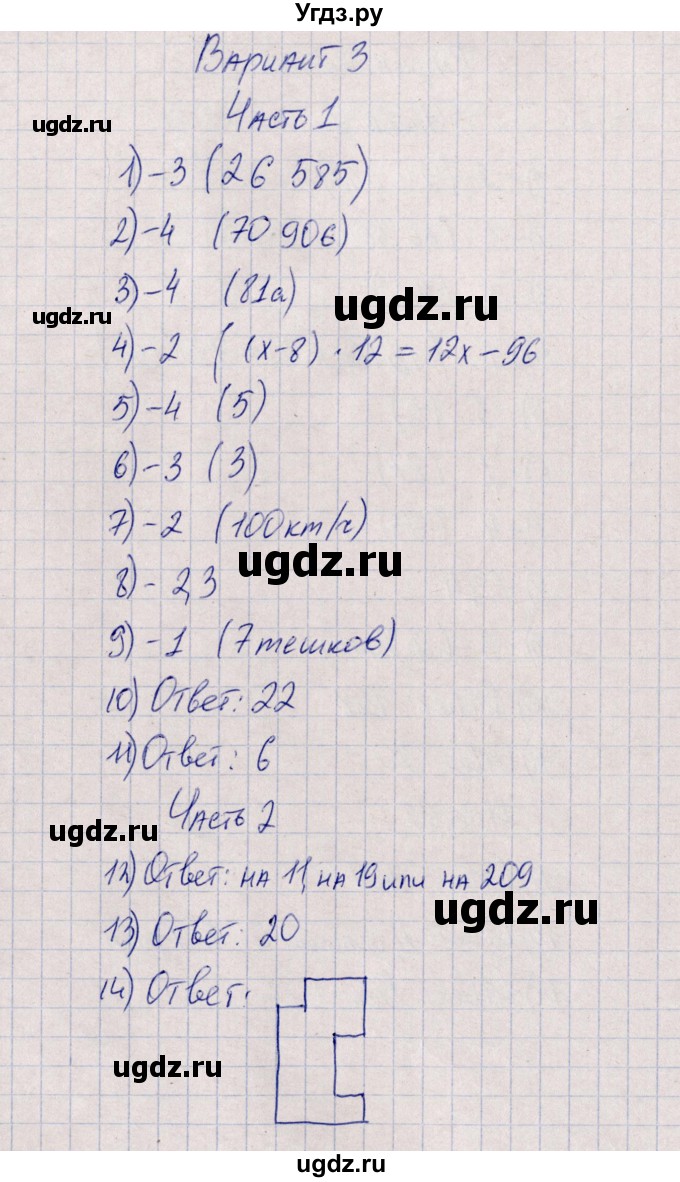 Угдз.ру
Вариант 3
ugdz.ru
Часть 1
1) - 3 (26 585)
2) - 4 (70 906)
3) - 4 (81a)
ugdz.ru
ugdz.ru
4) - 2 ( (x-8) · 12 = 12x - 96
5) - 4 (5)
6) - 3 (3)
7) - 2 (100 км/ч)
ugdz.ru
8) - 2,3
9) - 1 (7 мешков)
10) Ответ: 22
11) Ответ: 6
Часть 2
ugdz.ru
12) Ответ: на 11, на 19 или на 209
ugdz.ru
13) Ответ: 20
14) Ответ:
ugdz.ru
ugdz.ru